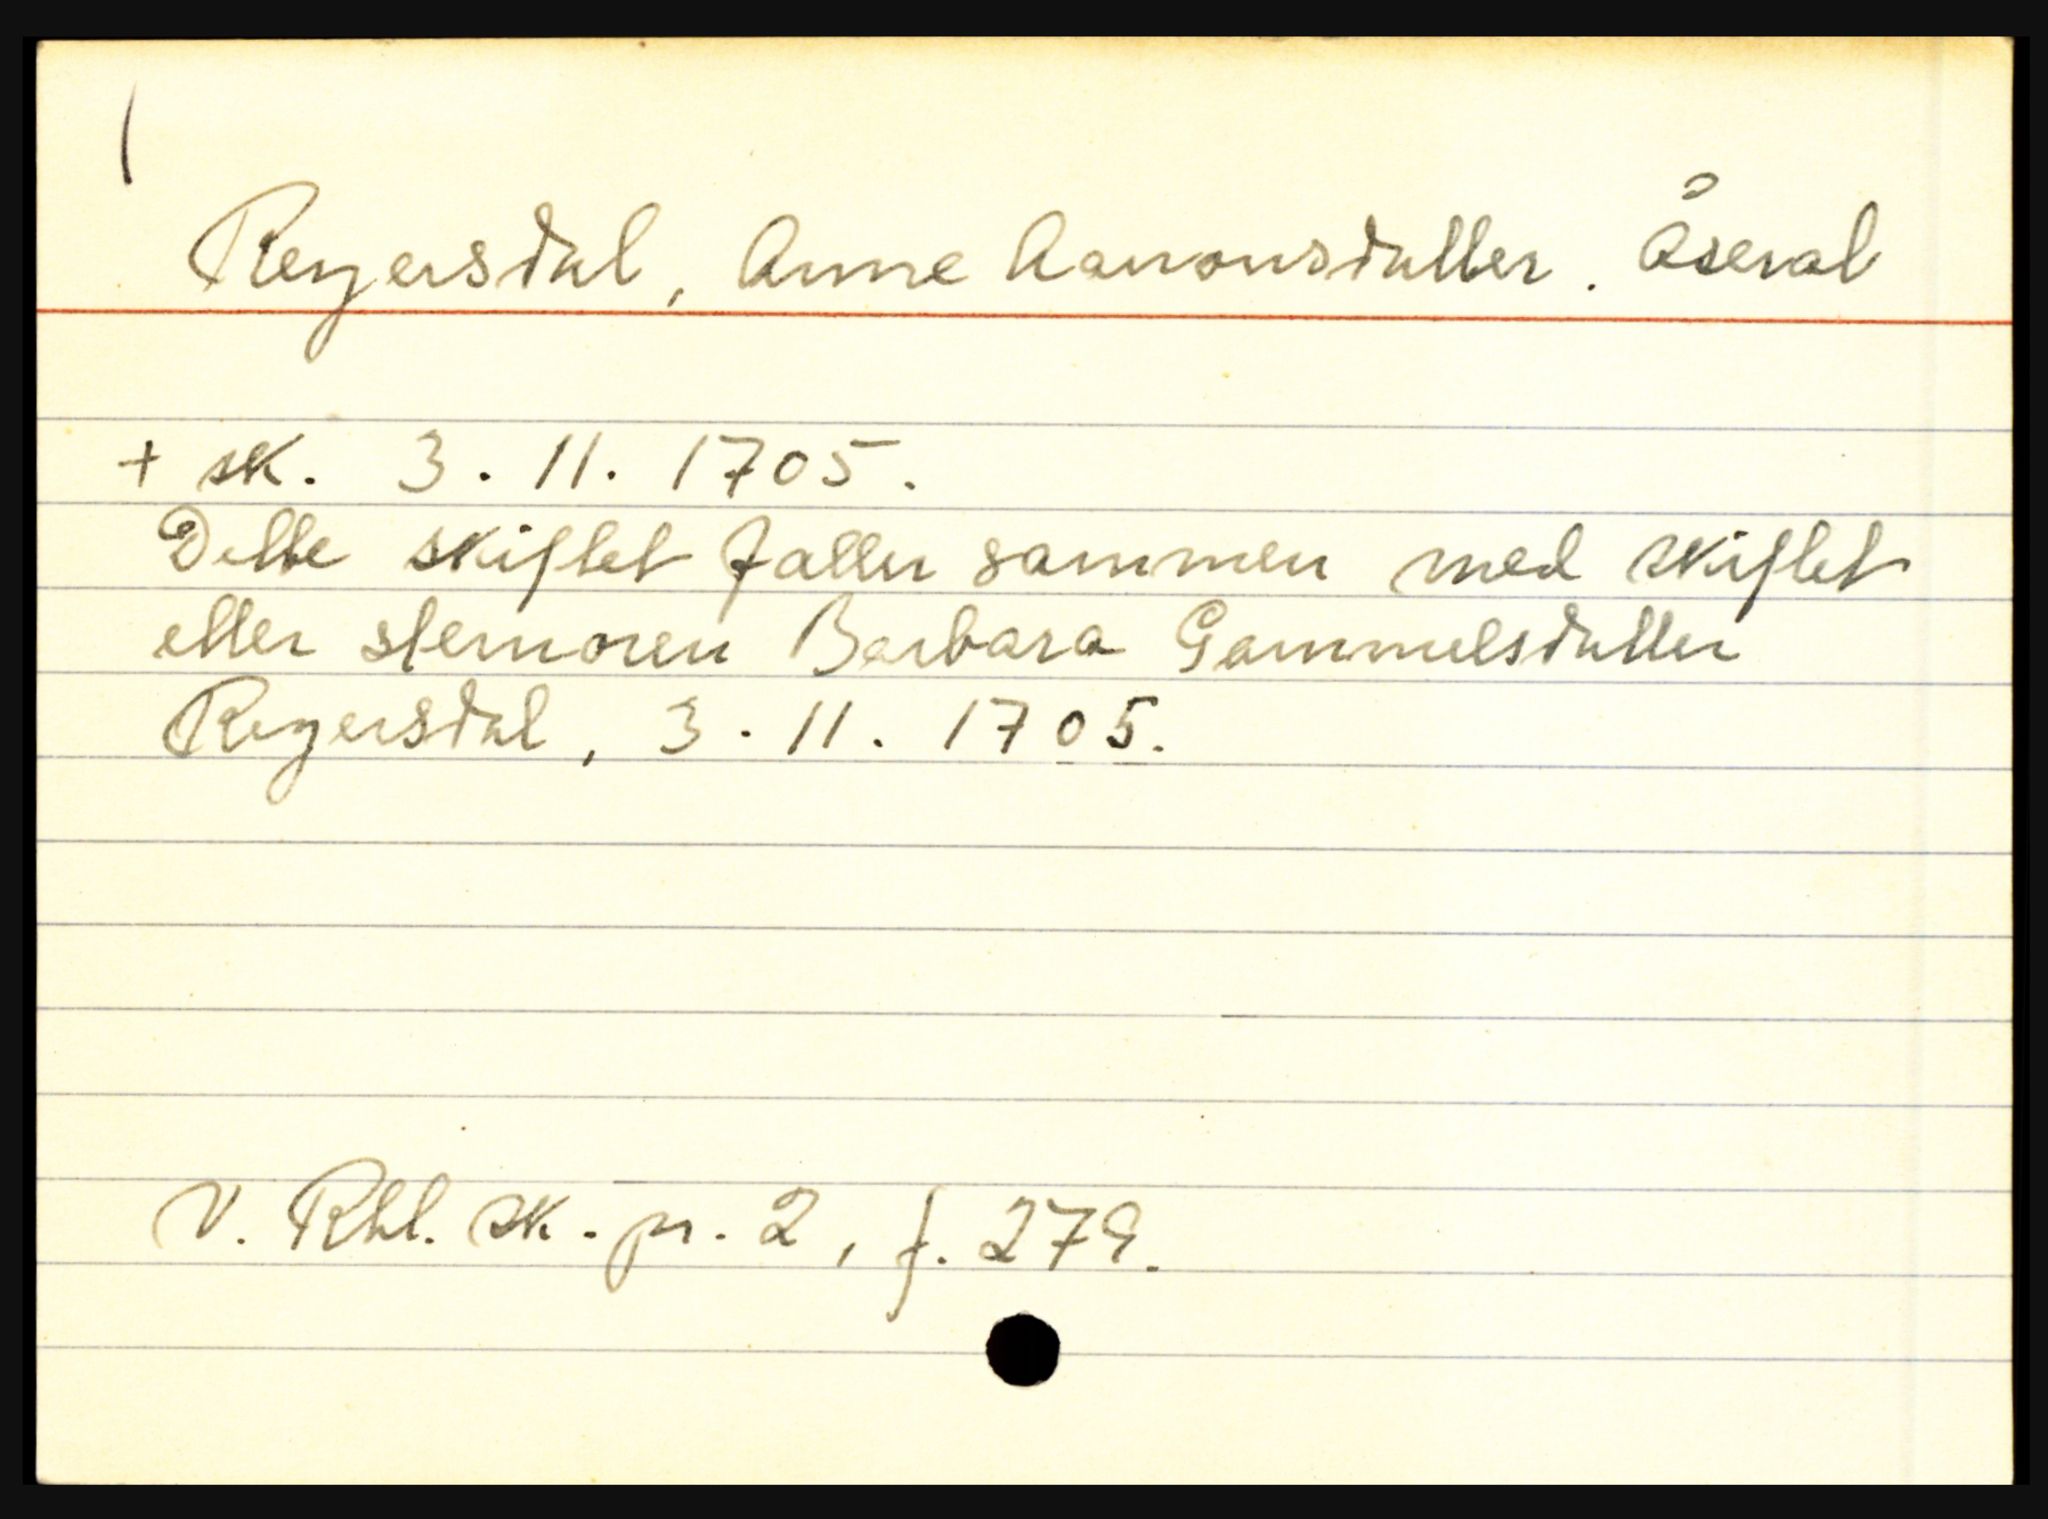 Reyersdal, Anne Aanonsdatter. Åseral
+ sk. 3. 11. 1705.
Dette skiftet faller sammen med skiftet
etter stemoren Barbara Gammelsdatter
Reyersdal, 3. 11. 1705.
V. Rbl. sk. pr. 2, f. 279.